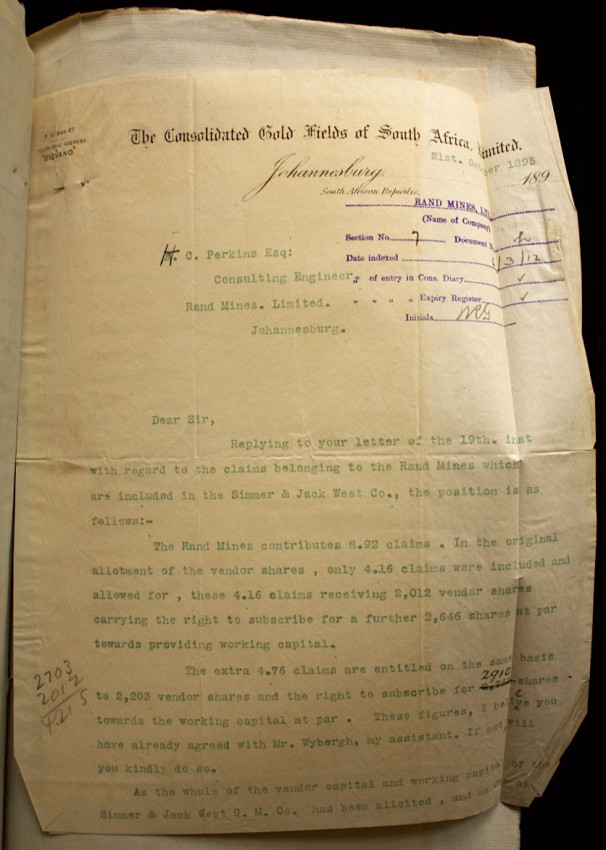 P. O. BOX 67
TELEGRAPHIC ADDRESS
"GIOVANO."
The Consolidated Gold Fields of South Africa, Limited.
21st. October 1895
Johannesburg,
189
South African Republic.
RAND MINES, LTD
(Name of Company)
Section No. 7 Document
Date indexed /3/12
" of entry in Cons. Diary
" " " " Expiry Register
Initials
H. C. Perkins Esq:
Consulting Engineer,
Rand Mines. Limited.
Johannesburg.
Dear Sir,
Replying to your letter of the 19th. inst
with regard to the claims belonging to the Rand Mines which
are included in the Simmer & Jack West Co., the position is as
follows:-
The Rand Mines contributes 8.92 claims . In the original
allotment of the vendor shares , only 4.16 claims were included and
allowed for , these 4.16 claims receiving 2,012 vendor shares
carrying the right to subscribe for a further 2,646 shares at par
towards providing working capital.
The extra 4.76 claims are entitled on the same basis
2910
to 2,203 vendor shares and the right to subscribe for shares
towards the working capital at par . These figures, I believe you
have already agreed with Mr. Wybergh, my assistant. If not, will
you kindly do so.
As the whole of the vendor capital and working capital of the
Simmer & Jack West G. M. Co. has been allotted , and as
2203
2012
4215